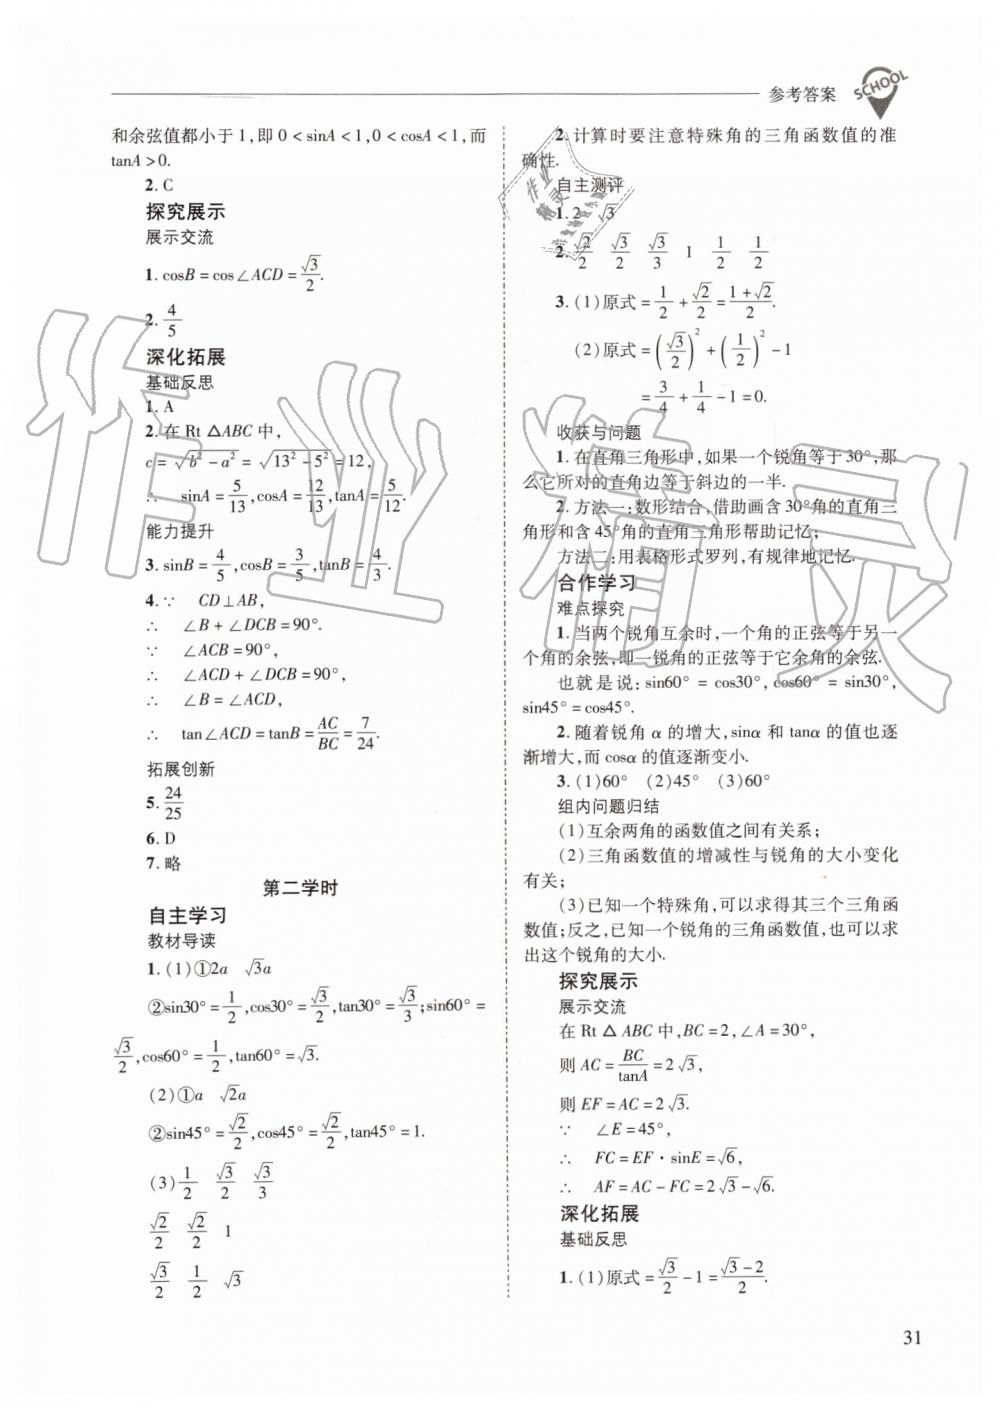 参考答案
SCHOOL
和余弦值都小于1,即0<sinA<1,0<cosA<1,而
tanA>0.
2. C
探究展示
展示交流
1. cosB=cos∠ACD=√3/2.
2. 4/5
深化拓展
基础反思
1. A
2. 在 Rt △ABC 中,
c=√(b²-a²)=√(13²-5²)=12,
∴ sinA=5/13,cosA=12/13,tanA=5/12.
能力提升
3. sinB=4/5,cosB=3/5,tanB=4/3.
4. ∵ CD⊥AB,
∴ ∠B+∠DCB=90°.
∵ ∠ACB=90°,
∴ ∠ACD+∠DCB=90°,
∴ ∠B=∠ACD,
∴ tan∠ACD=tanB=AC/BC=7/24.
拓展创新
5. 24/25
6. D
7. 略
第二学时
自主学习
教材导读
1. (1)①2a √3a
②sin30°=1/2,cos30°=√3/2,tan30°=√3/3;sin60°=
√3/2,cos60°=1/2,tan60°=√3.
(2)①a √2a
②sin45°=√2/2,cos45°=√2/2,tan45°=1.
(3)1/2 √3/2 √3/3
√2/2 √2/2 1
√3/2 1/2 √3
2. 计算时要注意特殊角的三角函数值的准
确性.
自主测评
1. 2 √3
2. √2/2 √3/2 √3/3 1 1/2 1/2
3. (1)原式=1/2+√2/2=(1+√2)/2.
(2)原式=(√3/2)²+(1/2)²-1
=3/4+1/4-1=0.
收获与问题
1. 在直角三角形中,如果一个锐角等于30°,那
么它所对的直角边等于斜边的一半.
2. 方法一:数形结合,借助画含30°角的直角三
角形和含45°角的直角三角形帮助记忆;
方法二:用表格形式罗列,有规律地记忆.
合作学习
难点探究
1. 当两个锐角互余时,一个角的正弦等于另一
个角的余弦,即一锐角的正弦等于它余角的余弦.
也就是说:sin60°=cos30°,cos60°=sin30°,
sin45°=cos45°.
2. 随着锐角α的增大,sinα和tanα的值也逐
渐增大,而cosα的值逐渐变小.
3. (1)60° (2)45° (3)60°
组内问题归结
(1)互余两角的函数值之间有关系;
(2)三角函数值的增减性与锐角的大小变化
有关;
(3)已知一个特殊角,可以求得其三个三角函
数值;反之,已知一个锐角的三角函数值,也可以求
出这个锐角的大小.
探究展示
展示交流
在 Rt △ABC 中,BC=2,∠A=30°,
则 AC=BC/tanA=2√3,
则 EF=AC=2√3.
∵ ∠E=45°,
∴ FC=EF·sinE=√6,
∴ AF=AC-FC=2√3-√6.
深化拓展
基础反思
1. (1)原式=√3/2-1=(√3-2)/2.
31
作业精灵
作业
精灵